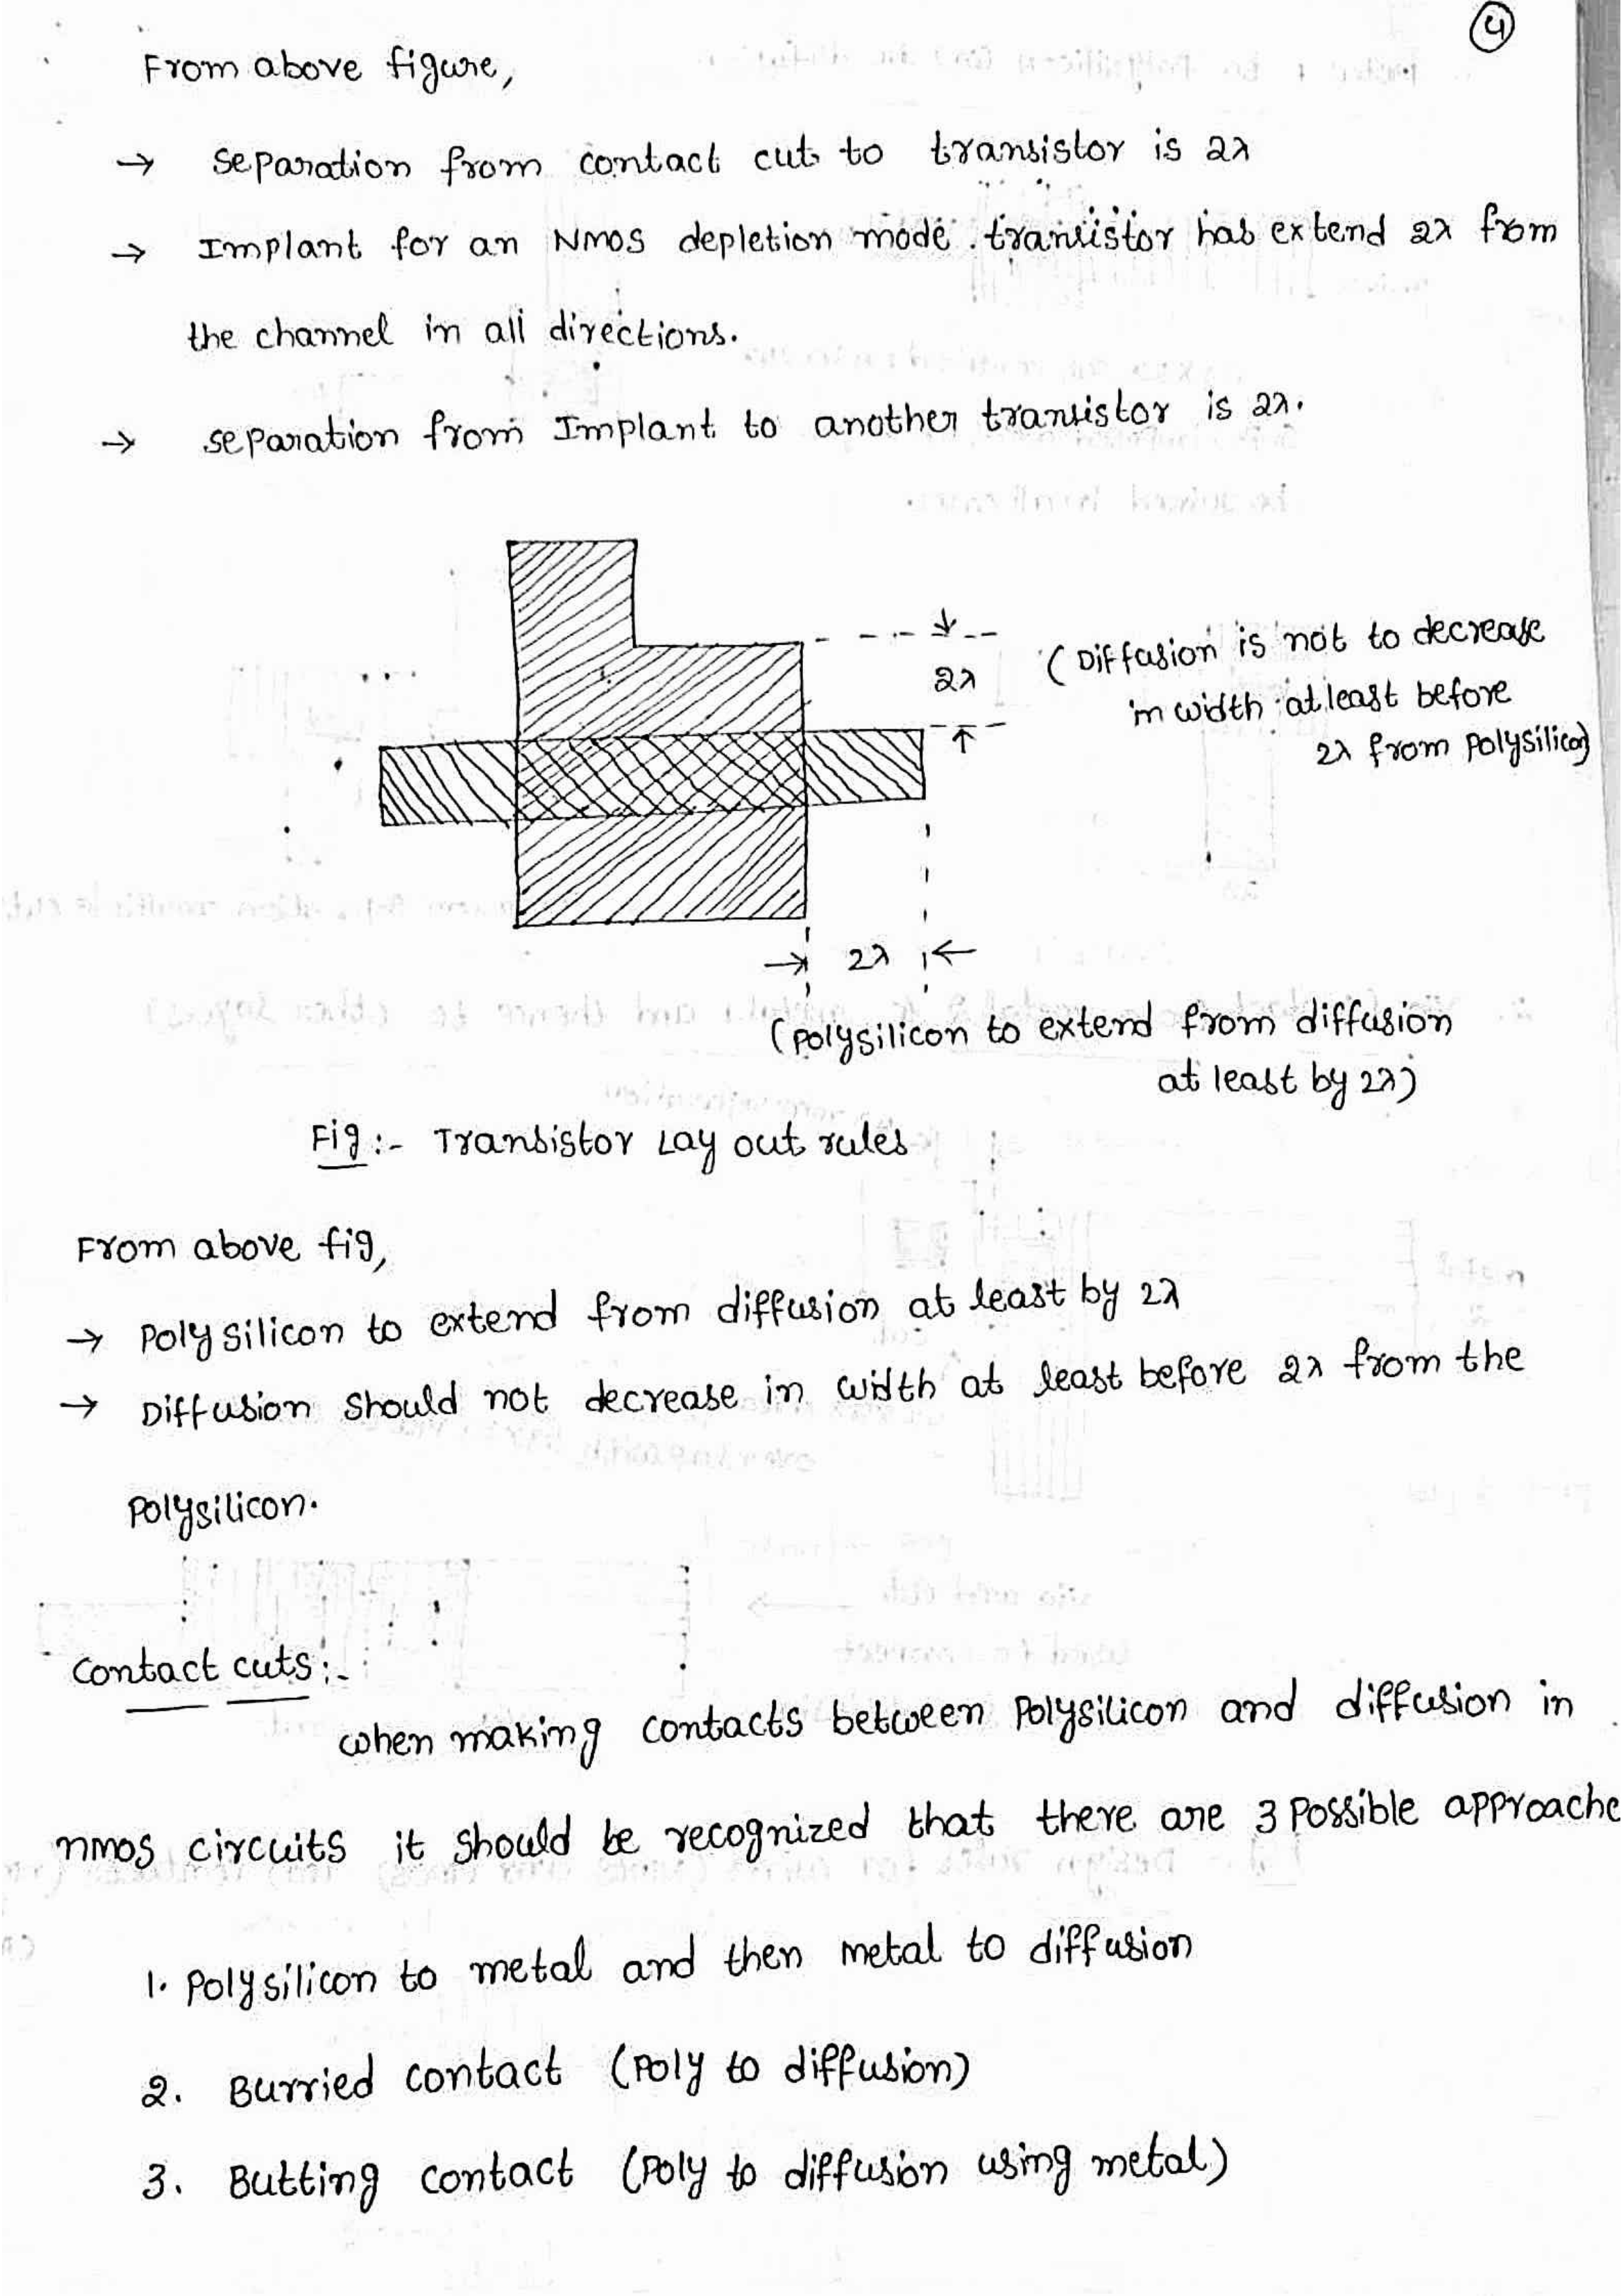 4
From above figure,
→ separation from contact cut to transistor is 2λ
→ Implant for an NMOS depletion mode transistor has extend 2λ from
the channel in all directions.
→ separation from Implant to another transistor is 2λ.
2λ
(Diffusion is not to decrease
in width at least before
2λ from Polysilicon)
→ 2λ ←
(polysilicon to extend from diffusion
at least by 2λ)
Fig:- Transistor Lay out rules
From above fig,
→ Poly silicon to extend from diffusion at least by 2λ
→ Diffusion should not decrease in width at least before 2λ from the
Polysilicon.
Contact cuts:-
when making contacts between Polysilicon and diffusion in
nmos circuits it should be recognized that there are 3 Possible approache
1. Poly silicon to metal and then metal to diffusion
2. Burried contact (Poly to diffusion)
3. Butting contact (Poly to diffusion using metal)